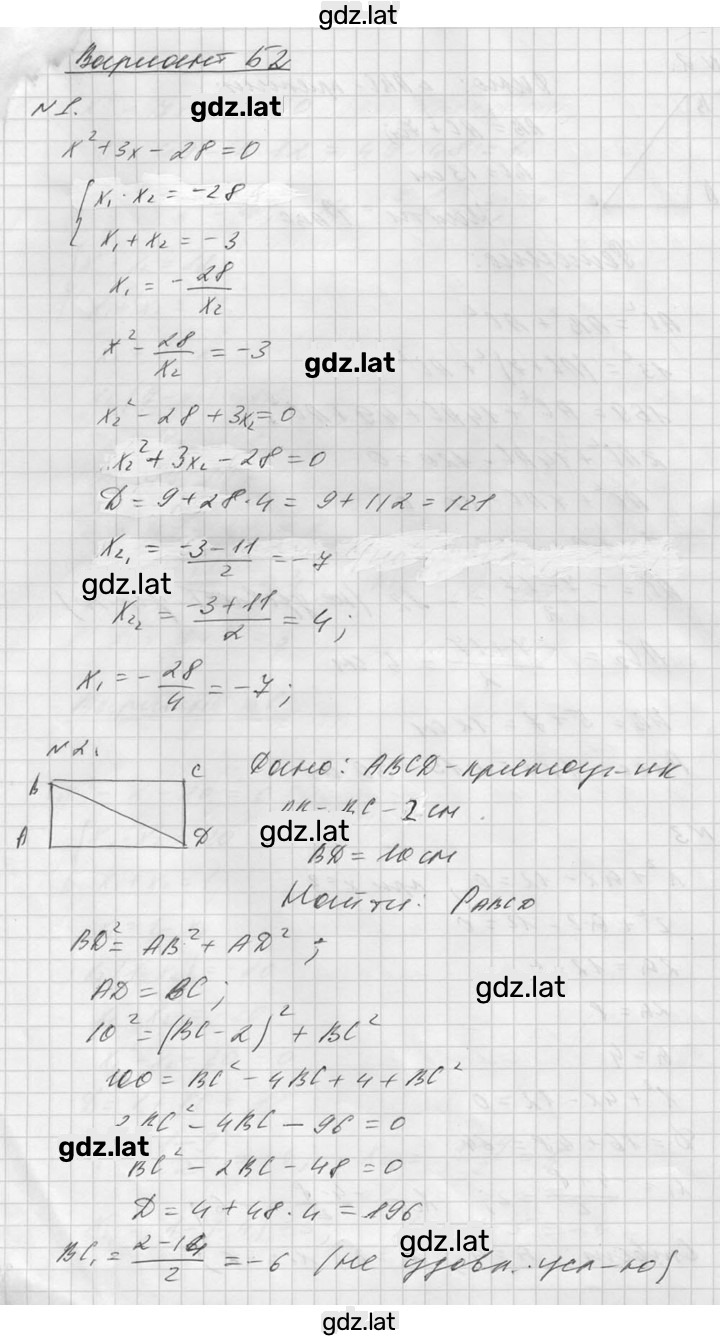 gdz.lat
Вариант Б2
gdz.lat
№1.
x² + 3x - 28 = 0
{ x₁ · x₂ = -28
x₁ + x₂ = -3
x₁ = - 28/x₂
x² - 28/x₂ = -3
gdz.lat
x₂² - 28 + 3x₂ = 0
x₂² + 3x₂ - 28 = 0
D = 9 + 28 · 4 = 9 + 112 = 121
x₂₁ = (-3-11)/2 = -7
gdz.lat
x₂₂ = (-3+11)/2 = 4;
x₁ = - 28/4 = -7;
№2.
B C
A D
Дано: ABCD - прямоуг-ик
BC - 2 см.
gdz.lat
BD = 10 см
Найти: P ABCD
BD² = AB² + AD²;
AD = BC;
gdz.lat
10² = (BC - 2)² + BC²
100 = BC² - 4BC + 4 + BC²
2BC² - 4BC - 96 = 0
gdz.lat
BC² - 2BC - 48 = 0
D = 4 + 48 · 4 = 196
gdz.lat
BC₁ = (2-14)/2 = -6 (не удовл. усл-ю)
gdz.lat